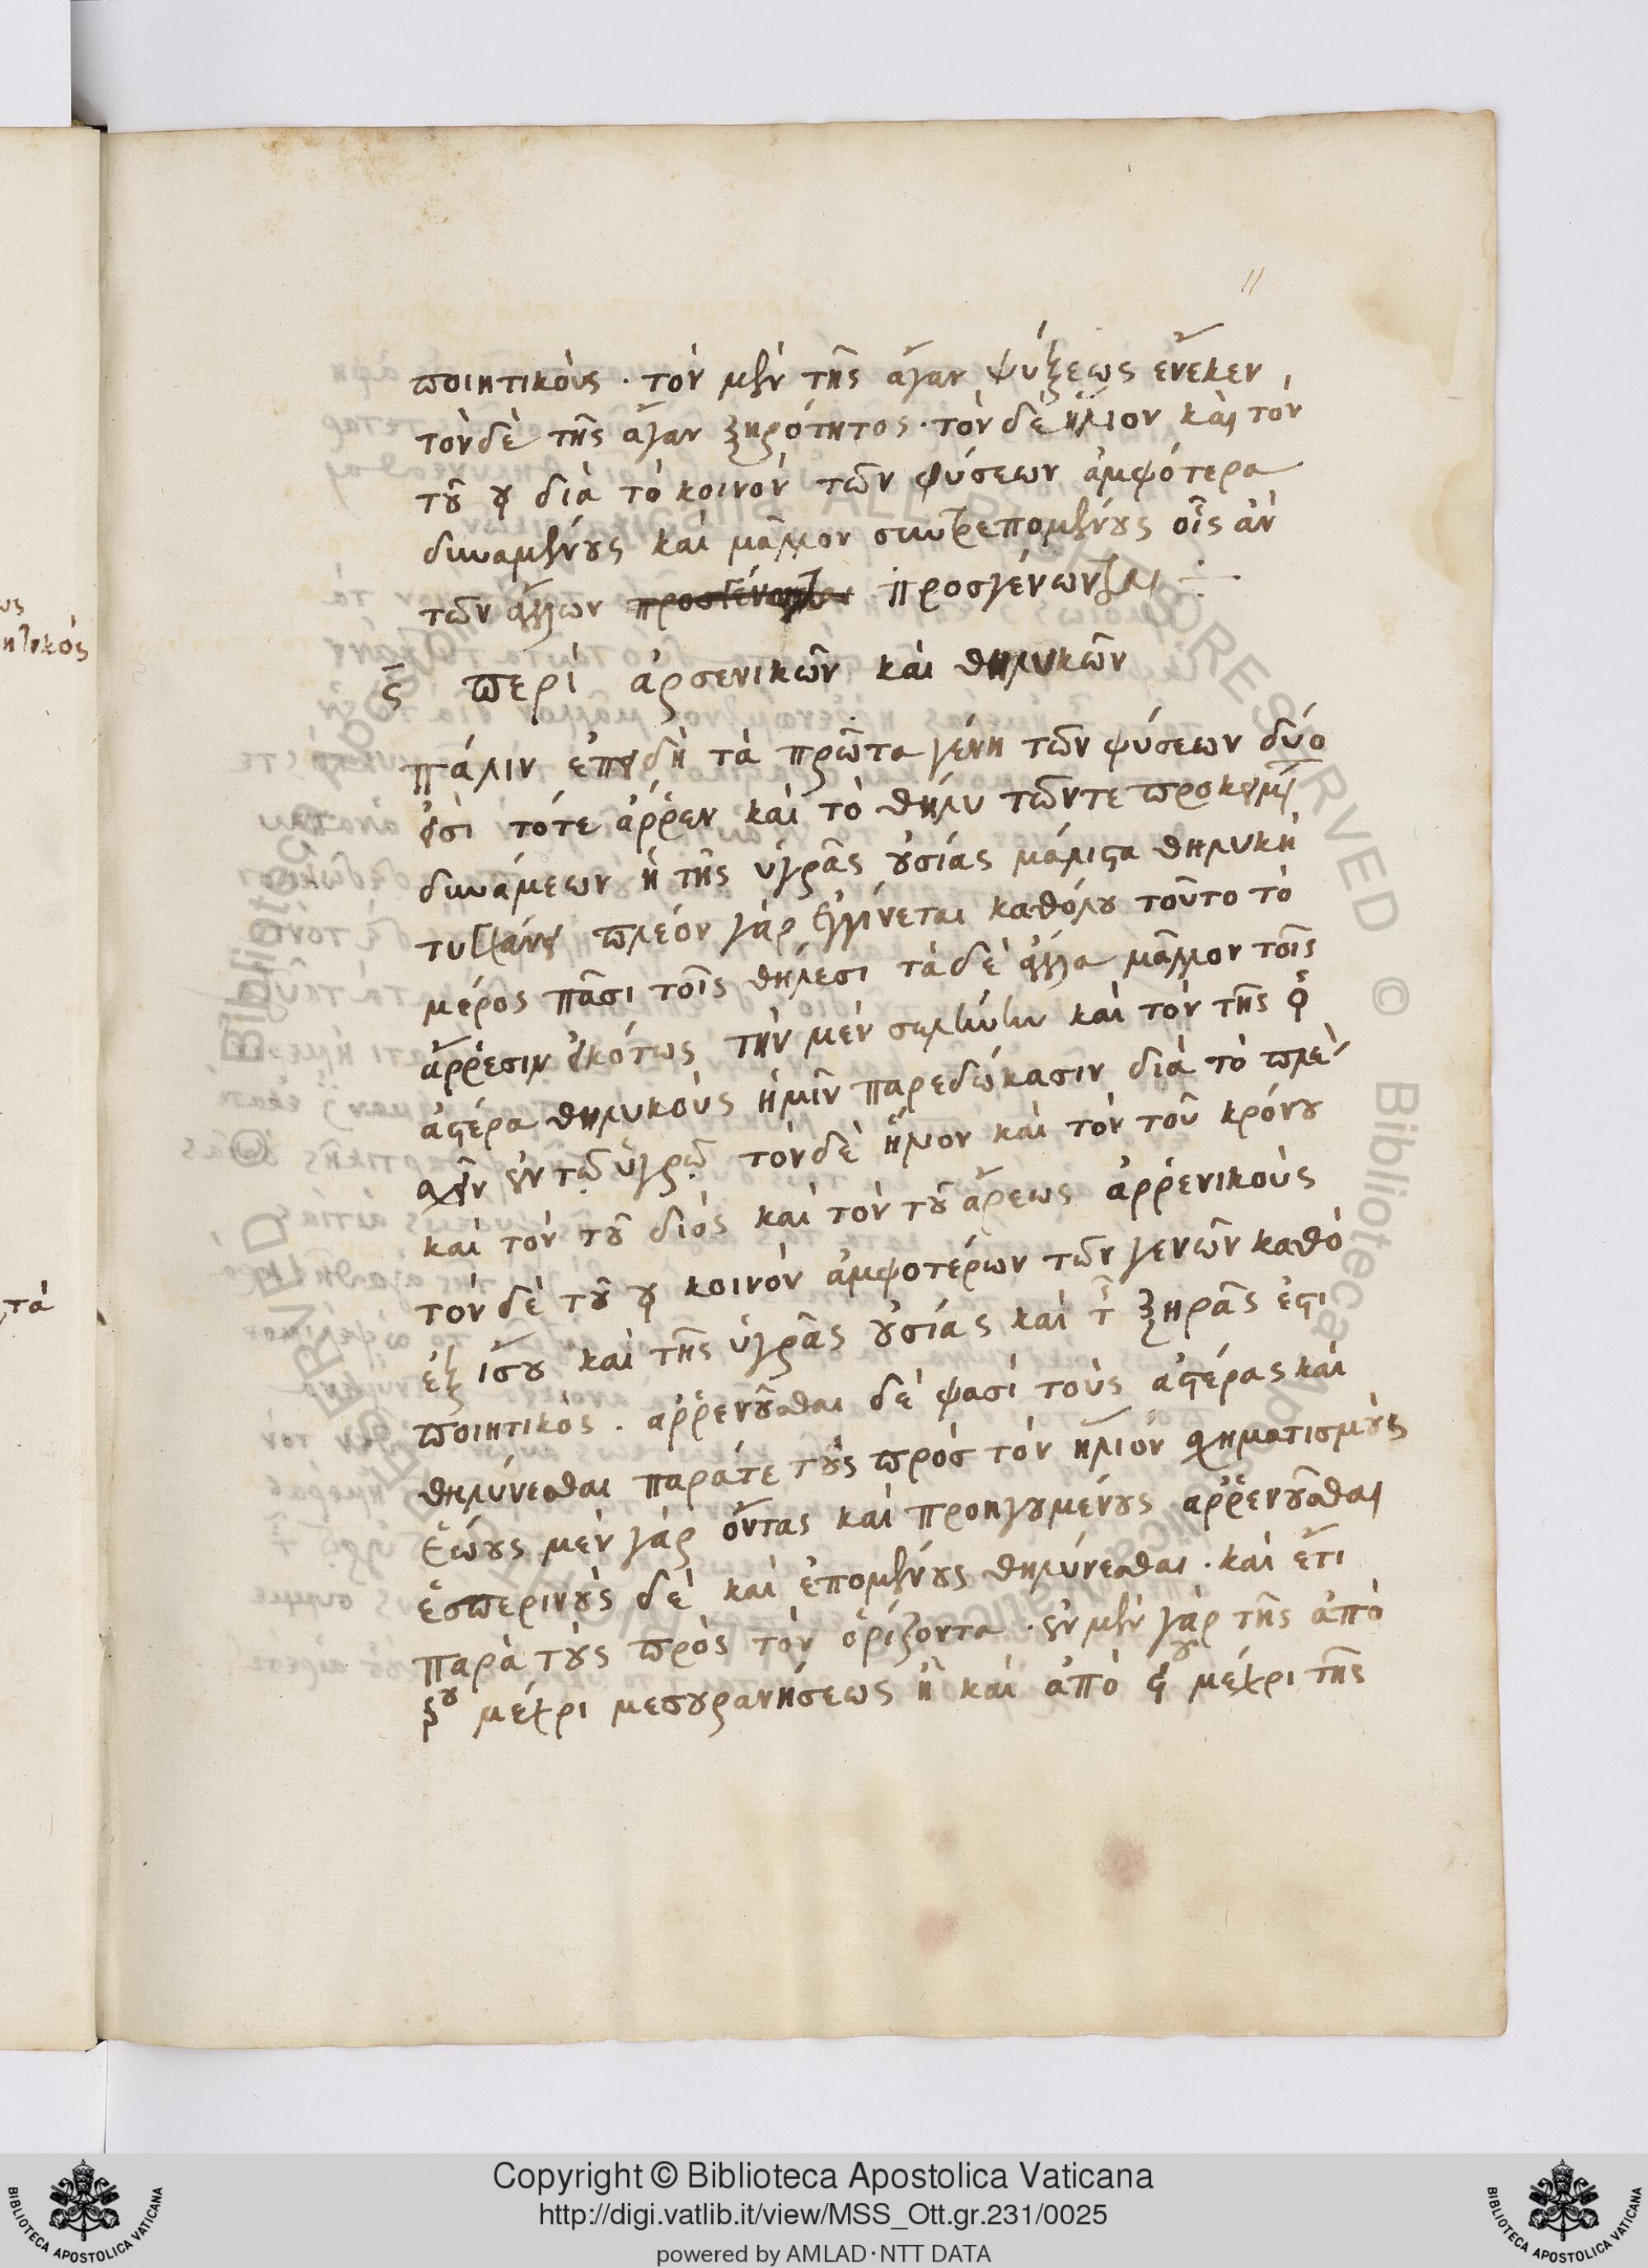 11
ποιητικοὺς · τὸν μὲν τῆς ἄγαν ψύξεως ἕνεκεν
τὸν δὲ τῆς ἄγαν ξηρότητος · τὸν δὲ ἥλιον καὶ τὸν
τοῦ ☿ διὰ τὸ κοινὸν τῶν φύσεων ἀμφότερα
δυναμένους καὶ μᾶλλον συντρεπομένους οἷς ἂν
τῶν ἄλλων προσγένωνται προσγένωνται ÷
ϛ περὶ ἀρσενικῶν καὶ θηλυκῶν
πάλιν ἐπειδὴ τὰ πρῶτα γένη τῶν φύσεων δύο
εἰσὶ τό τε ἄρρεν καὶ τὸ θῆλυ τῶν τε προκειμ
δυνάμεων ἡ τῆς ὑγρᾶς οὐσίας μάλιστα θηλυκὴ
τυγχάνει πλέον γὰρ ἐγγίνεται καθόλου τοῦτο τὸ
μέρος πᾶσι τοῖς θήλεσι τὰ δὲ ἄλλα μᾶλλον τοῖς
ἄρρεσιν εἰκότως τὴν μὲν σελήνην καὶ τὸν τῆς ♀
ἀστέρα θηλυκοὺς ἡμῖν παρεδώκασιν διὰ τὸ πλέ
σχεῖν ἐν τῷ ὑγρῷ τὸν δὲ ἥλιον καὶ τὸν τοῦ κρόνου
καὶ τὸν τοῦ διὸς καὶ τὸν τοῦ ἄρεως ἀρρενικοὺς
τὸν δὲ τοῦ ☿ κοινὸν ἀμφοτέρων τῶν γενῶν καθὸ
ἐξ ἴσου καὶ τῆς ὑγρᾶς οὐσίας καὶ τ ξηρᾶς ἐστι
ποιητικὸς · ἀρρενοῦσθαι δέ φασι τοὺς ἀστέρας καὶ
θηλύνεσθαι παρά τε τοὺς πρὸς τὸν ἥλιον σχηματισμοὺς
ἑῴους μὲν γὰρ ὄντας καὶ προηγουμένους ἀρρενοῦσθαι
ἑσπερινοὺς δὲ καὶ ἑπομένους θηλύνεσθαι · καὶ ἔτι
παρὰ τοὺς πρὸς τὸν ὁρίζοντα · ἐν μὲν γὰρ τῆς ἀπὸ
μέχρι μεσουρανήσεως ἢ καὶ ἀπὸ μέχρι τῆς
τὰ
Copyright © Biblioteca Apostolica Vaticana
http://digi.vatlib.it/view/MSS_Ott.gr.231/0025
powered by AMLAD·NTT DATA
BIBLIOTECA APOSTOLICA VATICANA
BIBLIOTECA APOSTOLICA VATICANA